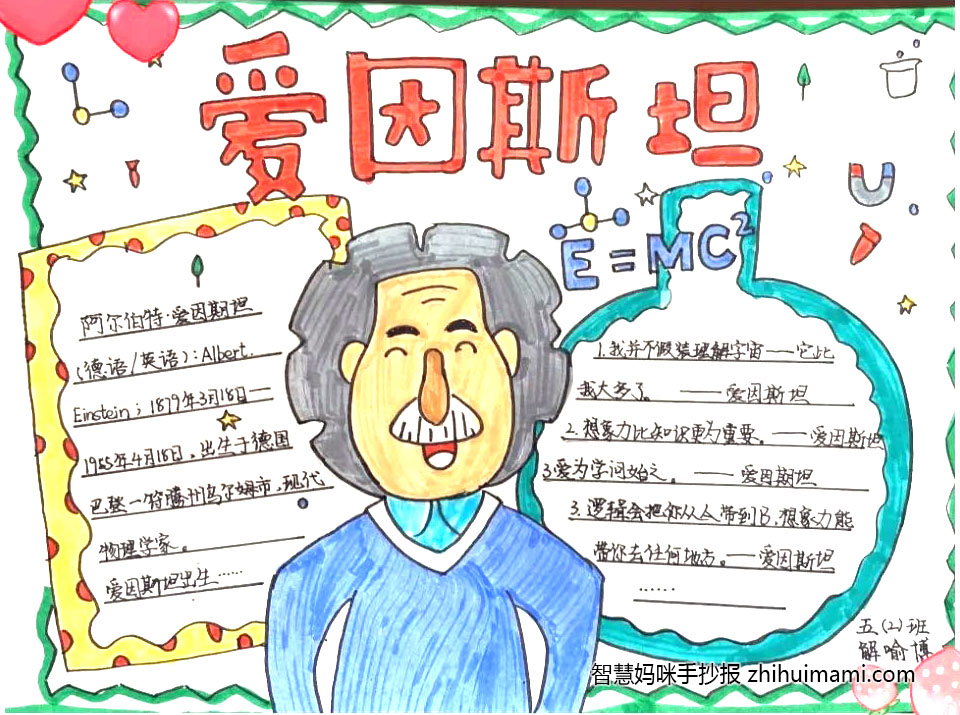 爱因斯坦
E=MC²
阿尔伯特·爱因斯坦
(德语/英语):Albert.
Einstein; 1879年3月18日—
1955年4月18日,出生于德国
巴登—符腾州乌尔姆市,现代
物理学家。
爱因斯坦出生……
1.我并不假装理解宇宙——它比
我大多了。 ——爱因斯坦
2.想象力比知识更为重要。——爱因斯坦
3.爱为学问始之。——爱因斯坦
3.逻辑会把你从A带到B,想象力能
带你去任何地方。——爱因斯坦
……
五(2)班
解喻博
智慧妈咪手抄报 zhihuimami.com